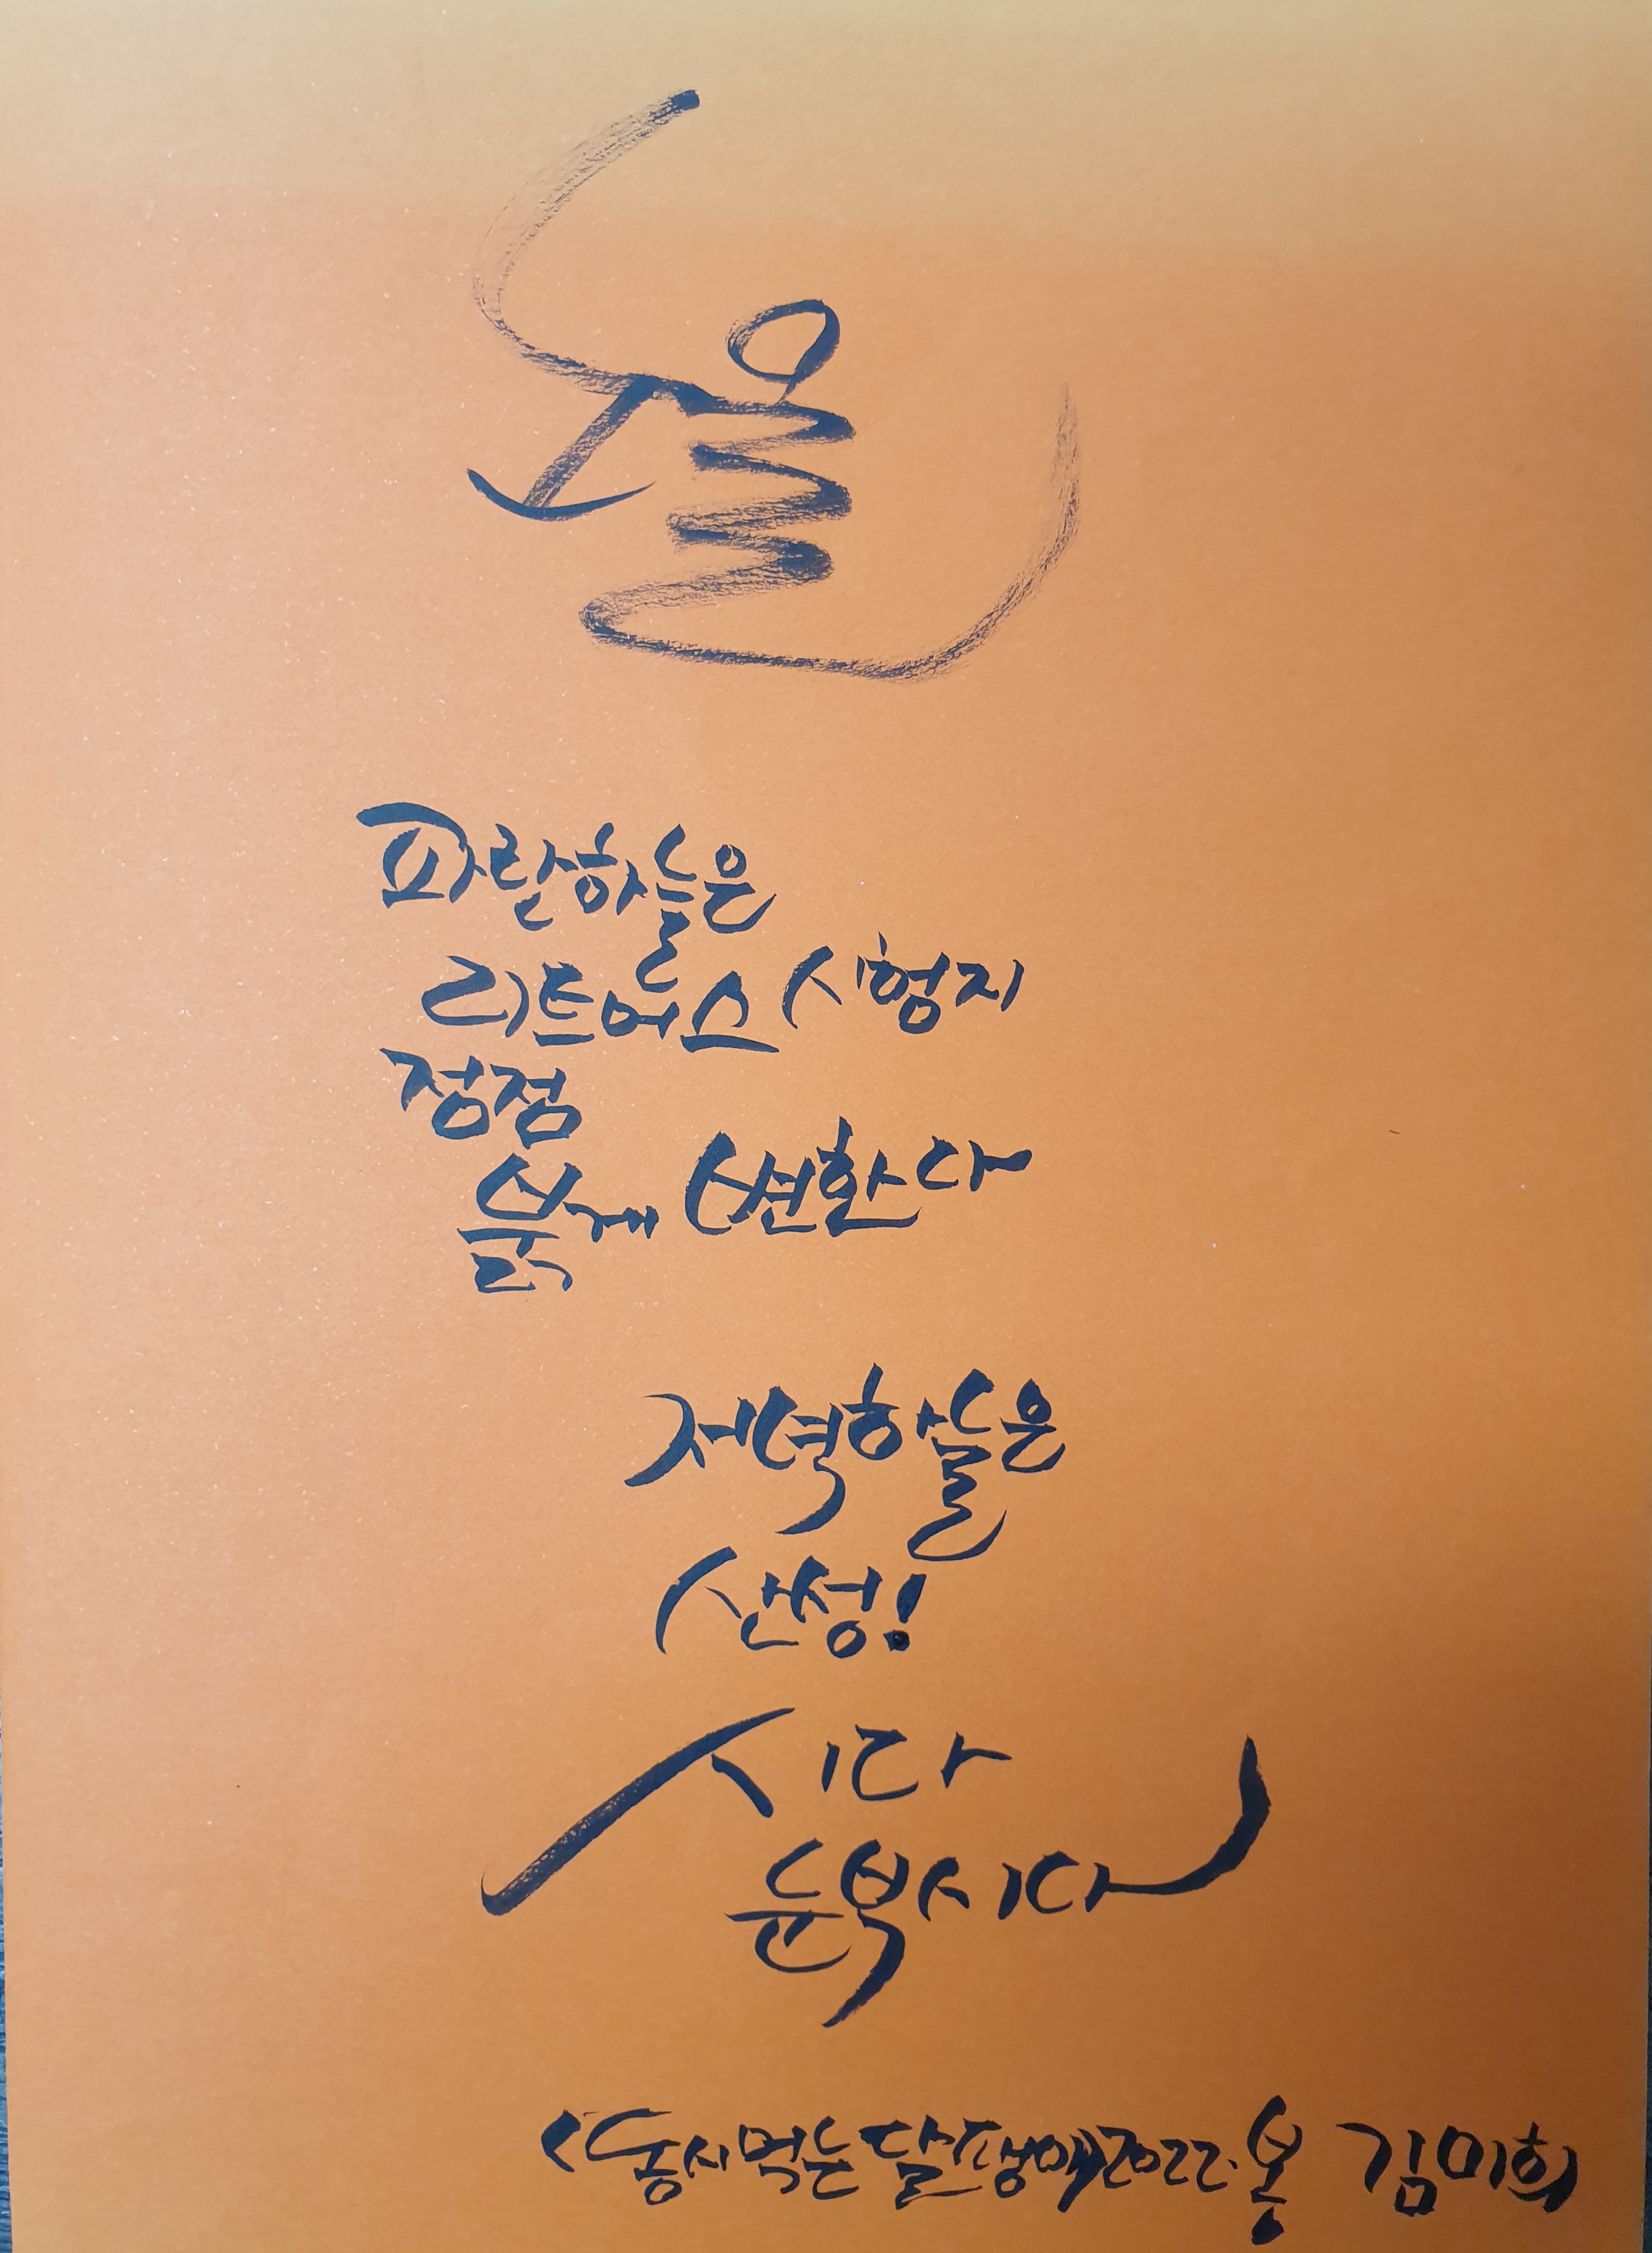 노을
파란하늘은
리트머스 시험지
점점
붉게 변한다
저녁하늘은
산성!
시다
눈부시다
<동시먹는달팽이>2022.봄 김미희